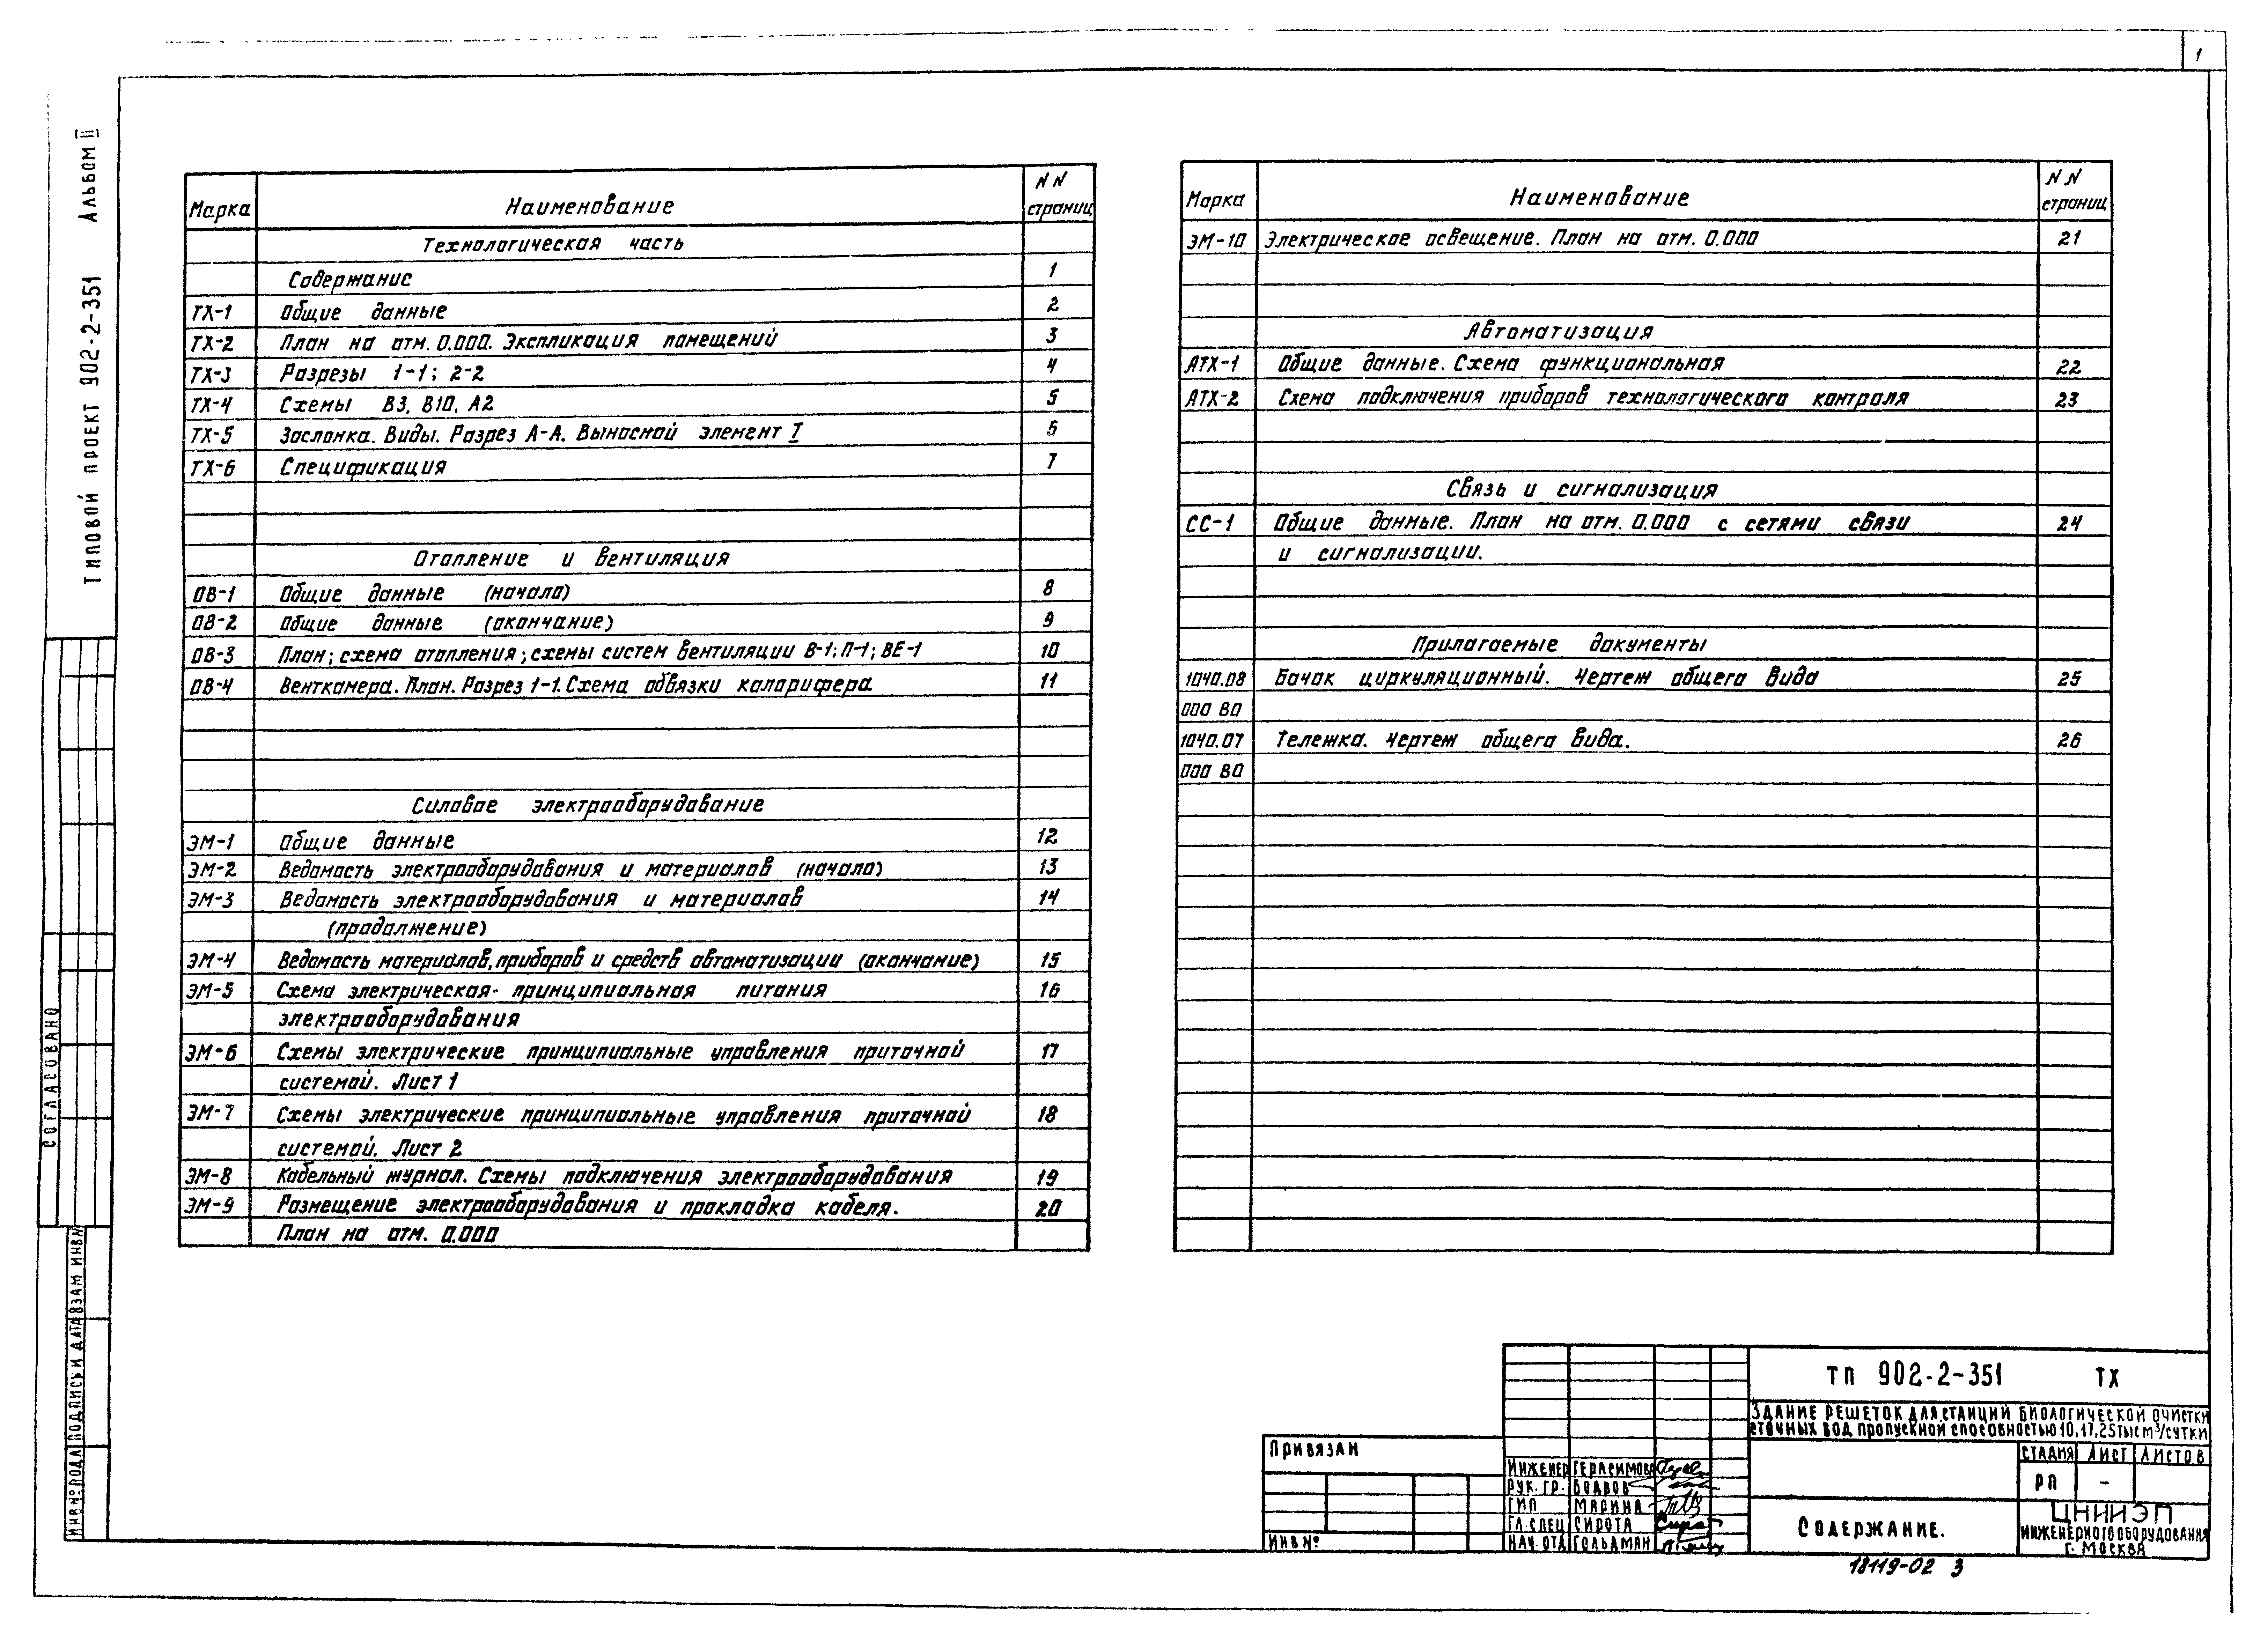 1
Типовой проект 902-2-351 Альбом II
Марка Наименование NN страниц
Технологическая часть
Содержание 1
ТХ-1 Общие данные 2
ТХ-2 План на отм. 0.000. Экспликация помещений 3
ТХ-3 Разрезы 1-1; 2-2 4
ТХ-4 Схемы В3, В10, А2 5
ТХ-5 Заслонка. Виды. Разрез А-А. Выносной элемент I 6
ТХ-6 Спецификация 7
Отопление и вентиляция
ОВ-1 Общие данные (начало) 8
ОВ-2 Общие данные (окончание) 9
ОВ-3 План; схема отопления; схемы систем вентиляции В-1; П-1; ВЕ-1 10
ОВ-4 Венткамера. План. Разрез 1-1. Схема обвязки калорифера 11
Силовое электрооборудование
ЭМ-1 Общие данные 12
ЭМ-2 Ведомость электрооборудования и материалов (начало) 13
ЭМ-3 Ведомость электрооборудования и материалов 14
(продолжение)
ЭМ-4 Ведомость материалов, приборов и средств автоматизации (окончание) 15
ЭМ-5 Схема электрическая- принципиальная питания 16
электрооборудования
ЭМ-6 Схемы электрические принципиальные управления приточной 17
системой. Лист 1
ЭМ-7 Схемы электрические принципиальные управления приточной 18
системой. Лист 2
ЭМ-8 Кабельный журнал. Схемы подключения электрооборудования 19
ЭМ-9 Размещение электрооборудования и прокладка кабеля. 20
План на отм. 0.000
Марка Наименование NN страниц
ЭМ-10 Электрическое освещение. План на отм. 0.000 21
Автоматизация
АТХ-1 Общие данные. Схема функциональная 22
АТХ-2 Схема подключения приборов технологического контроля 23
Связь и сигнализация
СС-1 Общие данные. План на отм. 0.000 с сетями связи 24
и сигнализации.
Прилагаемые документы
1040.08 Бачок циркуляционный. Чертеж общего вида 25
000 ВО
1040.07 Тележка. Чертеж общего вида. 26
000 ВО
СОГЛАСОВАНО
ИНВ № ПОДЛ ПОДПИСЬ И ДАТА ВЗАМ ИНВ N
Привязан
ИНВ №
Инженер Герасимова
Рук. гр. Бодров
ГИП Марина
Гл. спец Сирота
Нач. отд Гольдман
ТП 902-2-351 ТХ
Здание решеток для станций биологической очистки
сточных вод пропускной способностью 10, 17, 25 тыс м³/сутки
Стадия Лист Листов
РП -
Содержание.
ЦНИИЭП
инженерного оборудования
г. Москва
18119-02 3